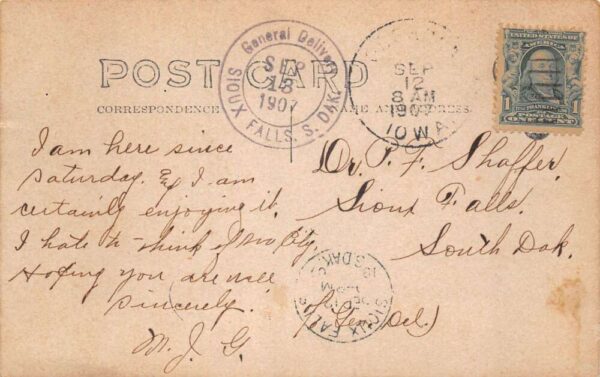 POST CARD
CORRESPONDENCE
NAME AND ADDRESS
General Delivery
SEP
13
1907
SIOUX FALLS, S. DAK.
SEP
12
8 AM
1907
IOWA
UNITED STATES OF AMERICA
1
POSTAGE
ONE CENT
I am here since
Saturday. & I am
certainly enjoying it.
I hate to think of
Hoping you are well
Sincerely.
M. J. G.
Dr. T. F. Shaffer,
Sioux Falls.
South Dak.
(Gen Del)
SIOUX FALLS
S. DAK